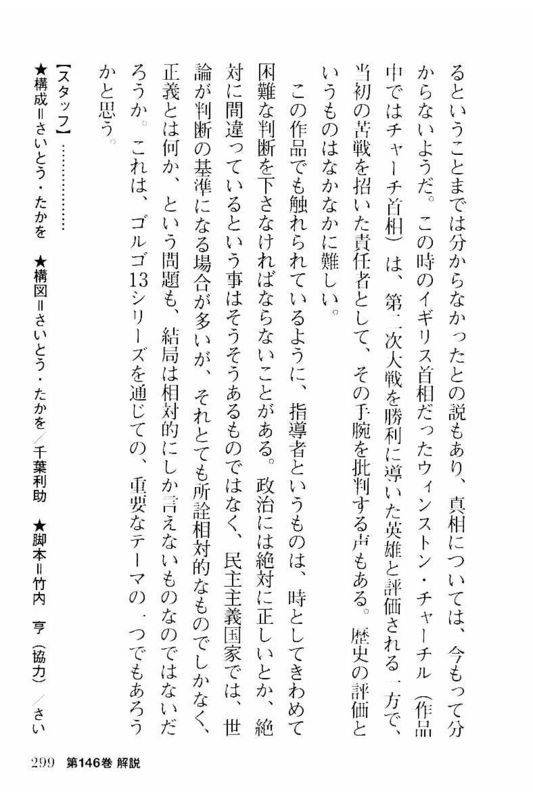 るということまでは分からなかったとの説もあり、真相については、今もって分
からないようだ。この時のイギリス首相だったウィンストン・チャーチル（作品
中ではチャーチ首相）は、第二次大戦を勝利に導いた英雄と評価される一方で、
当初の苦戦を招いた責任者として、その手腕を批判する声もある。歴史の評価と
いうものはなかなかに難しい。
この作品でも触れられているように、指導者というものは、時としてきわめて
困難な判断を下さなければならないことがある。政治には絶対に正しいとか、絶
対に間違っているという事はそうそうあるものではなく、民主主義国家では、世
論が判断の基準になる場合が多いが、それとても所詮相対的なものでしかなく、
正義とは何か、という問題も、結局は相対的にしか言えないものなのではないだ
ろうか。これは、ゴルゴ13シリーズを通じての、重要なテーマの一つでもあろう
かと思う。
【スタッフ】………………
★構成＝さいとう・たかを ★構図＝さいとう・たかを／千葉利助 ★脚本＝竹内 亨（協力）／さい
299 第146巻 解説